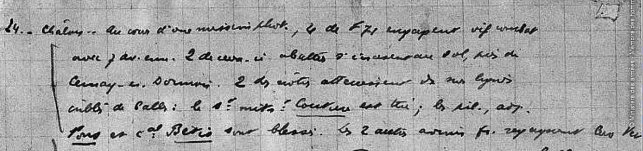 24.- Châlons - Au cours d'une mission phot., 4 de F 71 engagent vif combat
avec 7 av. enn. 2 de ceux-ci abattus s'écrasent au sol, près de
Cernay-en-Dormois. 2 des nôtres atterrissent ds nos lignes
criblés de balles : le s/ mitr. Couture est tué ; les pil., adj.
Pons et cal Betis sont blessés. Les 2 autres avions fr. regagnent leur